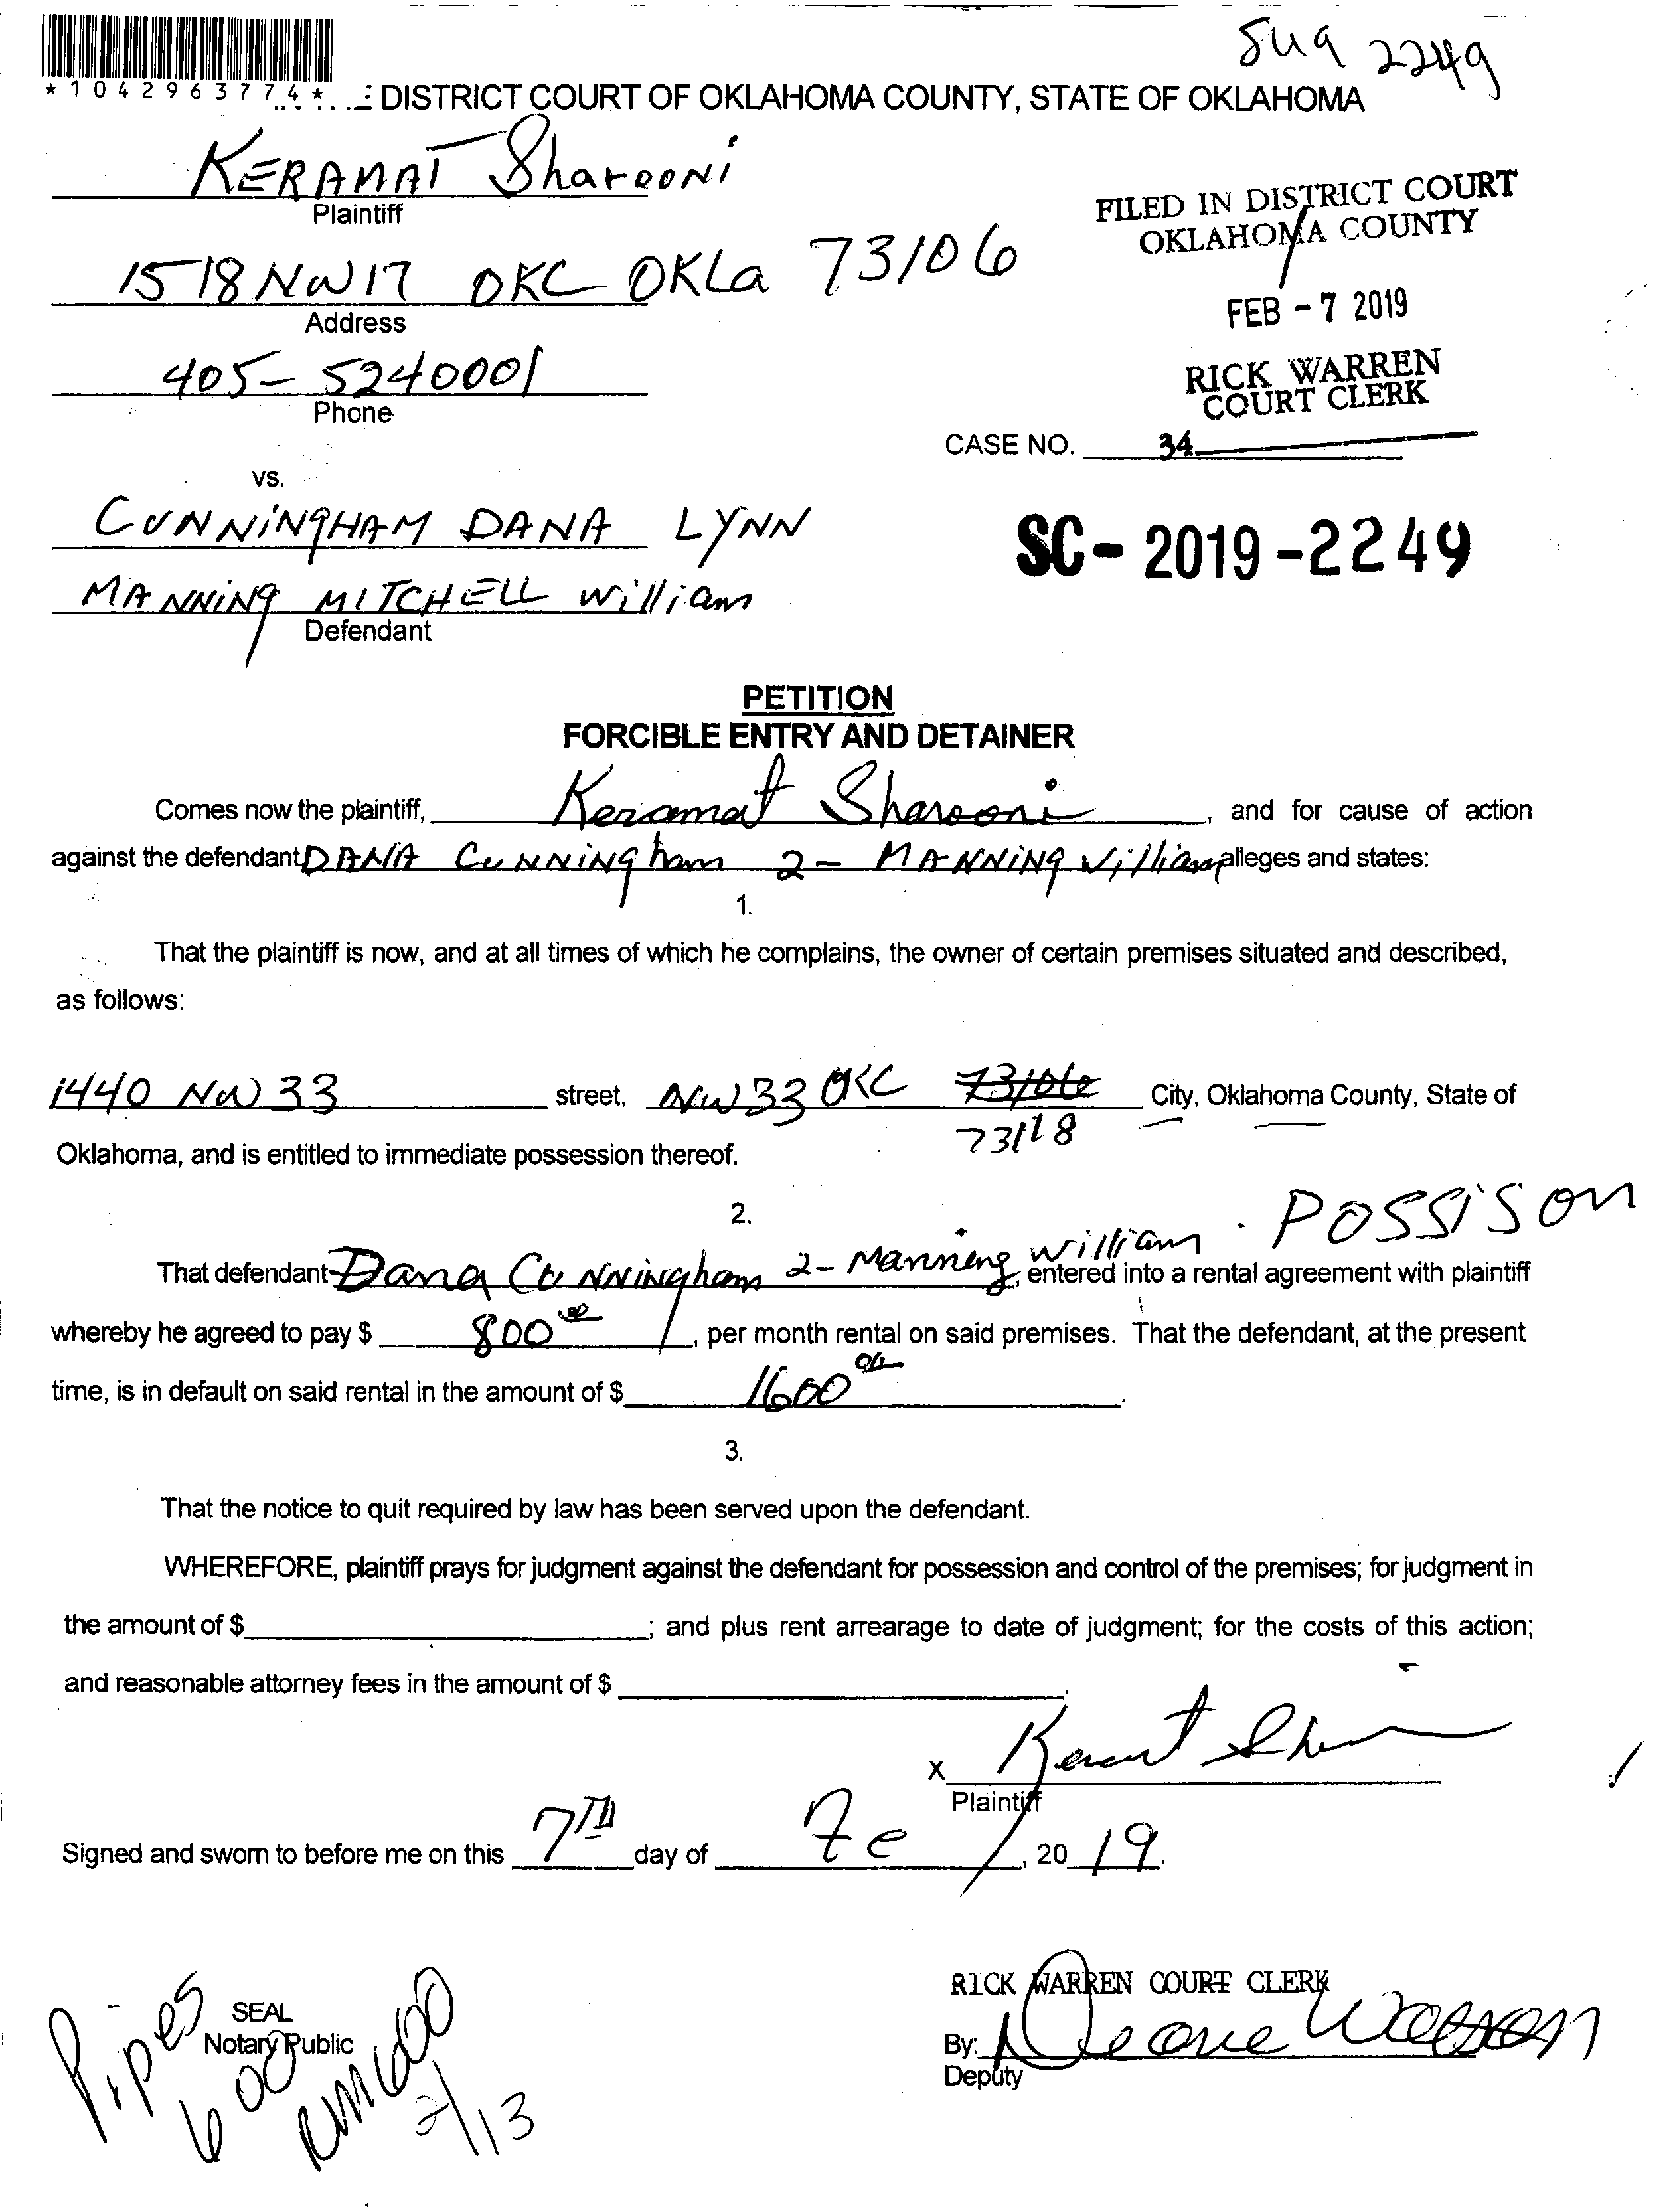 sug 2249
*1042963774*
DISTRICT COURT OF OKLAHOMA COUNTY, STATE OF OKLAHOMA
KERAMAT Sharooni
Plaintiff
FILED IN DISTRICT COURT
OKLAHOMA COUNTY
1518 NW 17 OKC OKLa 73106
Address
FEB - 7 2019
405- 5240001
Phone
RICK WARREN
COURT CLERK
CASE NO. 34
vs.
CUNNiNgHAM DANA LYNN
SC- 2019-2249
MANNiNg MITCHELL William
Defendant
PETITION
FORCIBLE ENTRY AND DETAINER
Comes now the plaintiff, Keramat Sharooni, and for cause of action
against the defendant DANA CuNNiNgham 2- MANNiNg William alleges and states:
1.
That the plaintiff is now, and at all times of which he complains, the owner of certain premises situated and described,
as follows:
1440 NW 33 street, NW 33 OKC 73106 City, Oklahoma County, State of
73118
Oklahoma, and is entitled to immediate possession thereof.
2.
POSSISON
That defendant Dana CuNNiNgham 2- Manning William, entered into a rental agreement with plaintiff
whereby he agreed to pay $ 800 00, per month rental on said premises. That the defendant, at the present
time, is in default on said rental in the amount of $ 1600 00.
3.
That the notice to quit required by law has been served upon the defendant.
WHEREFORE, plaintiff prays for judgment against the defendant for possession and control of the premises; for judgment in
the amount of $ ; and plus rent arrearage to date of judgment; for the costs of this action;
and reasonable attorney fees in the amount of $ .
X
Plaintiff
Signed and sworn to before me on this 7TH day of Fe, 20 19.
RICK WARREN COURT CLERK
SEAL
Notary Public
By:
Deputy
Pipes
600
RM 600
2/13